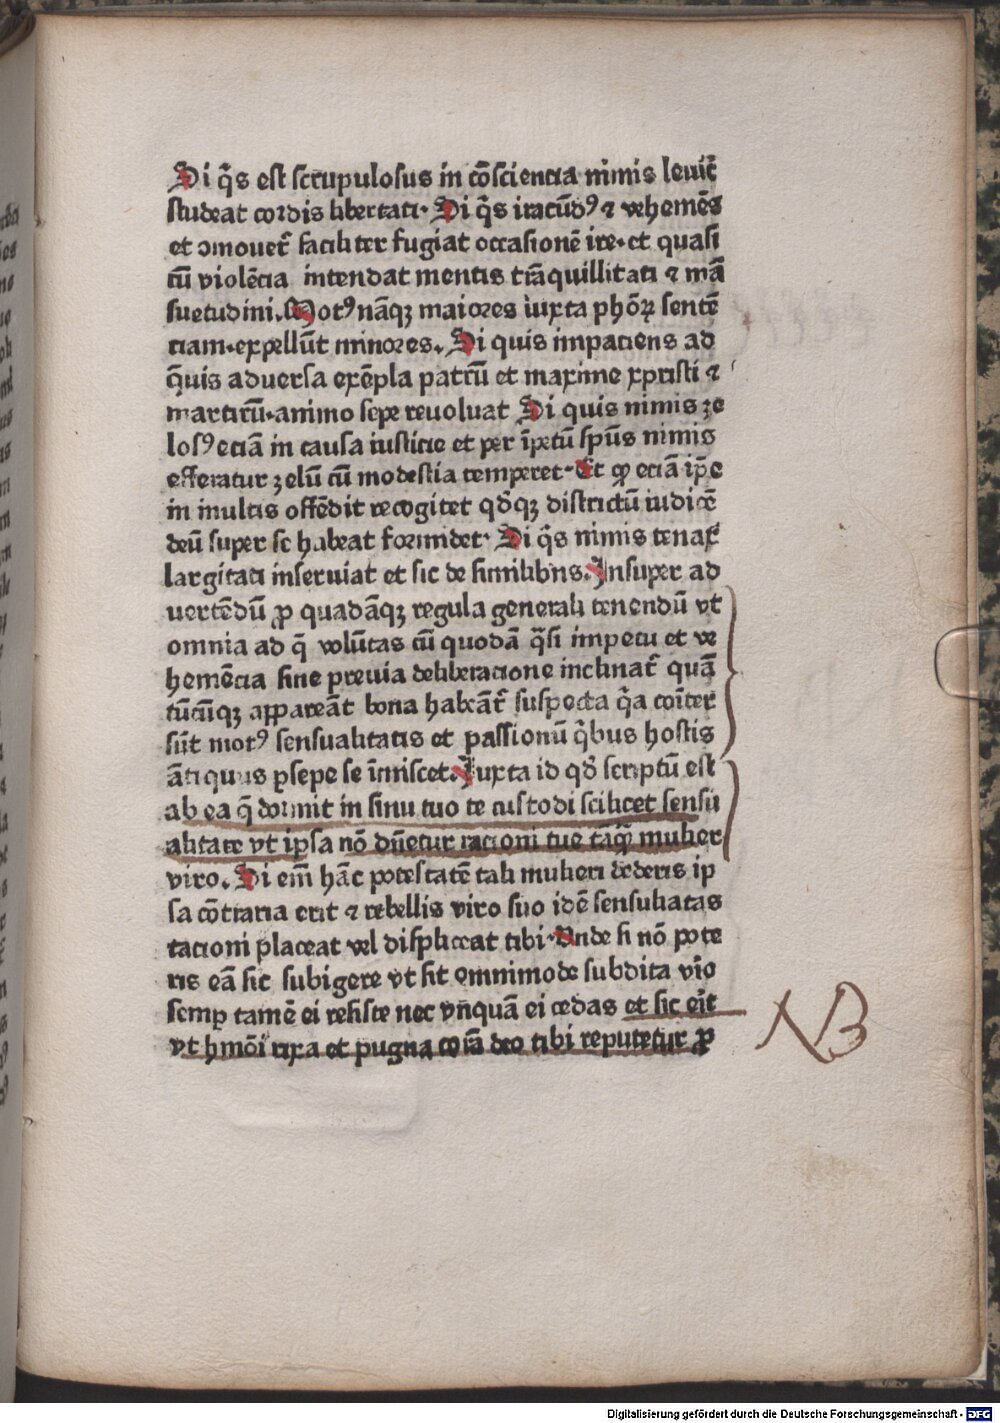 Si q̄s est scrupulosus in cōsciencia nimis leuit̄
studeat cordis libertati. Si q̄s iracūdꝰ ⁊ vehemēs
et ↄmouet̄ faciliter fugiat occasionē ire. et quasi
cū violēcia intendat mentis trāquillitati ⁊ mā
suetudini. Motꝰ nāqꝫ maiores iuxta phōꝝ sentē
ciam. expellūt minores. Si quis impatiens ad
q̄uis aduersa exēpla patrū et maxime xpristi ⁊
martirū. animo sepe reuoluat Si quis nimis ze
losꝰ eciā in causa iusticie et per īpetū sp̄us nimis
efferatur zelū cū modestia temperet. Et ꝙ eciā ip̄e
in multis offēdit recogitet qd̄qꝫ districtū iudicē
deū super se habeat formidet. Si q̄s nimis tenax
largitati inseruiat et sic de similibus. Insuper ad
uertēdū ꝓ quadāqꝫ regula generali tenendū vt
omnia ad q̄ volūtas cū quodā q̄si impetu et ve
hemēcia sine preuia deliberacione inclinat̄ quā
tūcūqꝫ appareāt bona habeāt̄ suspecta q̄a cōiter
sūt motꝰ sensualitatis et passionū q̄bus hostis
ātiquus psepe se īmiscet. Iuxta id qd̄ scriptū est
ab ea q̄ dormit in sinu tuo te custodi scilicet sensu
alitate vt ipsa nō dn̄etur racioni tue tāq̄ mulier
viro. Si em̄ hāc potestatē tali mulieri dederis ip
sa cōtraria erit ⁊ rebellis viro suo idē sensulitatas
racioni placeat vel displiceat tibi. Unde si nō pote
ris eā sic subigere vt sit omnimode subdita viro
semꝑ tamē ei resiste nec vnquā ei cedas et sic eīt
vt hmōi rixa et pugna corā deo tibi reputetur ꝓ
NB
Digitalisierung gefördert durch die Deutsche Forschungsgemeinschaft - DFG